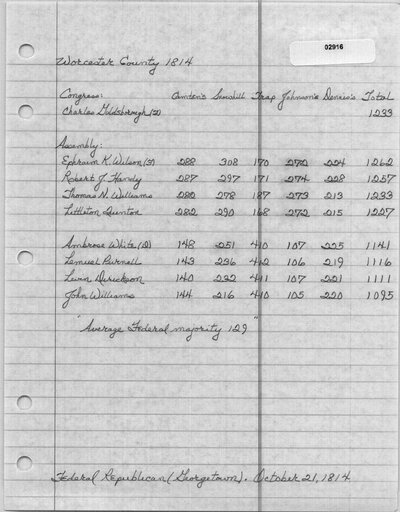 02916
Worcester County 1814
Congress: Camten's Snowhill Trap Johnson's Dennis's Total
Charles Goldsborough (F) 1233
Assembly:
Ephraim K. Wilson (F) 288 308 170 272 224 1262
Robert J. Handy 287 297 171 274 228 1257
Thomas N. Williams 282 278 187 273 213 1233
Littleton Quinton 282 290 168 272 215 1227
Ambrose White (D) 148 251 410 107 225 1141
Lemuel Purnell 143 236 412 106 219 1116
Levin Derickson 140 232 411 107 221 1111
John Williams 144 216 410 105 220 1095
"Average Federal majority 129"
Federal Republican (Georgetown). October 21, 1814.